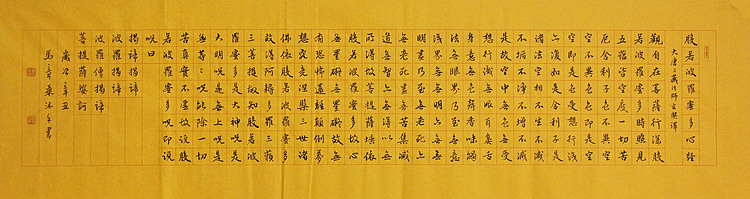 般若波羅蜜多心經
大唐三藏法師玄奘譯
觀自在菩薩行深般
若波羅蜜多時照見
五蘊皆空度一切苦
厄舍利子色不異空
空不異色色即是空
空即是色受想行識
亦復如是舍利子是
諸法空相不生不滅
不垢不淨不增不減
是故空中無色無受
想行識無眼耳鼻舌
身意無色聲香味觸
法無眼界乃至無意
識界無無明亦無無
明盡乃至無老死亦
無老死盡無苦集滅
道無智亦無得以無
所得故菩提薩埵依
般若波羅蜜多故心
無罣礙無罣礙故無
有恐怖遠離顛倒夢
想究竟涅槃三世諸
佛依般若波羅蜜多
故得阿耨多羅三藐
三菩提故知般若波
羅蜜多是大神咒是
大明咒是無上咒是
無等等咒能除一切
苦真實不虛故說般
若波羅蜜多咒即說
咒曰
揭諦揭諦
波羅揭諦
波羅僧揭諦
菩提薩婆訶
歲次辛丑
馬